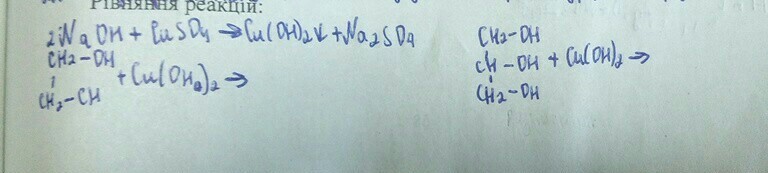 Рівняння реакцій:
2NaOH + CuSO4 → Cu(OH)2↓ + Na2SO4
CH2-OH
CH2-CH + Cu(OH2)2 →
CH2-OH
CH-OH + Cu(OH)2 →
CH2-OH